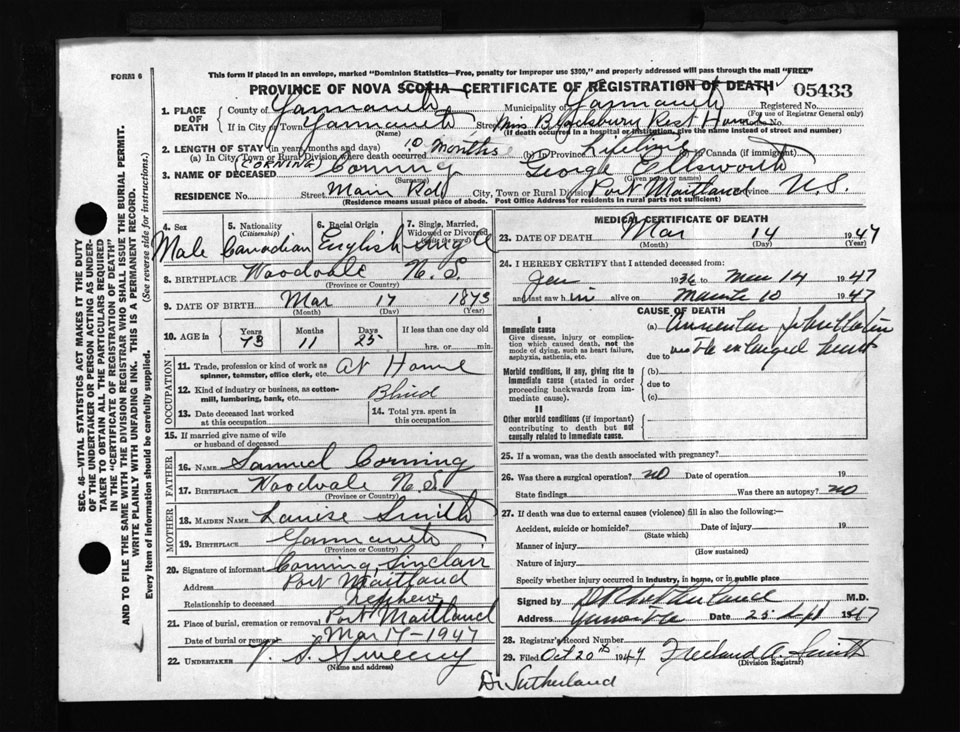 FORM 6
This form if placed in an envelope, marked "Dominion Statistics—Free, penalty for improper use $300," and properly addressed will pass through the mail "FREE"
PROVINCE OF NOVA SCOTIA—CERTIFICATE OF REGISTRATION OF DEATH
05433
1. PLACE OF DEATH
County of Yarmouth Municipality of Yarmouth Registered No.
(For use of Registrar General only)
If in City or Town Yarmouth Street Mrs. Blacksbury Rest Home No.
(Name) (If death occurred in a hospital or institution, give the name instead of street and number)
2. LENGTH OF STAY (in years, months and days)
(a) In City, Town or Rural Division where death occurred 10 months (b) In Province Lifetime Canada (if immigrant)
(CORNING)
3. NAME OF DECEASED Corning George Ellsworth
(Surname) (Given name or names)
RESIDENCE No. Street Main Rd City, Town or Rural Division Port Maitland Province N.S.
(Residence means usual place of abode. Post Office Address for residents in rural parts not sufficient)
4. Sex Male
5. Nationality (Citizenship) Canadian
6. Racial Origin English
7. Single, Married, Widowed or Divorced (Write the word) Single
8. BIRTHPLACE Woodvale N.S.
(Province or Country)
9. DATE OF BIRTH Mar 17 1873
(Month) (Day) (Year)
10. AGE in Years 73 Months 11 Days 25 If less than one day
hrs. or min.
OCCUPATION
11. Trade, profession or kind of work as spinner, teamster, office clerk, etc. At Home
12. Kind of industry or business, as cotton-mill, lumbering, bank, etc. Blind
13. Date deceased last worked at this occupation
14. Total yrs. spent in this occupation
15. If married give name of wife or husband of deceased
FATHER
16. NAME Samuel Corning
17. BIRTHPLACE Woodvale N.S.
(Province or Country)
MOTHER
18. MAIDEN NAME Louise Smith
19. BIRTHPLACE Yarmouth
(Province or Country)
20. Signature of informant Corning Sinclair
Address Port Maitland
Relationship to deceased nephew
21. Place of burial, cremation or removal Port Maitland
Date of burial or removal Mar 17-1947
22. UNDERTAKER V. S. Sweeny
(Name and address)
MEDICAL CERTIFICATE OF DEATH
23. DATE OF DEATH Mar 14 1947
(Month) (Day) (Year)
24. I HEREBY CERTIFY that I attended deceased from:
Jan 1936 to Mar 14 1947
and last saw him alive on March 10 1947
CAUSE OF DEATH
I
Immediate cause
Give disease, injury or complication which caused death, not the mode of dying, such as heart failure, asphyxia, asthenia, etc.
(a) Auricular
due to enlarged heart
Morbid conditions, if any, giving rise to immediate cause (stated in order proceeding backwards from immediate cause).
(b)
due to
(c)
II
Other morbid conditions (if important) contributing to death but not causally related to immediate cause.
25. If a woman, was the death associated with pregnancy?
26. Was there a surgical operation? no Date of operation 19
State findings Was there an autopsy? no
27. If death was due to external causes (violence) fill in also the following:—
Accident, suicide or homicide? Date of injury 19
(State which)
Manner of injury
(How sustained)
Nature of injury
Specify whether injury occurred in industry, in home, or in public place
Signed by Sutherland M.D.
Address Yarmouth Date 25 Sept 1947
28. Registrar's Record Number
29. Filed Oct 20th 1947 Freeland A. Smith
(Division Registrar)
Dr Sutherland
SEC. 46—VITAL STATISTICS ACT MAKES IT THE DUTY OF THE UNDERTAKER OR PERSON ACTING AS UNDERTAKER TO OBTAIN ALL THE PARTICULARS REQUIRED IN THE "CERTIFICATE OF REGISTRATION OF DEATH" AND TO FILE THE SAME WITH THE DIVISION REGISTRAR WHO SHALL ISSUE THE BURIAL PERMIT.
WRITE PLAINLY WITH UNFADING INK. THIS IS A PERMANENT RECORD.
Every item of information should be carefully supplied. (See reverse side for instructions.)